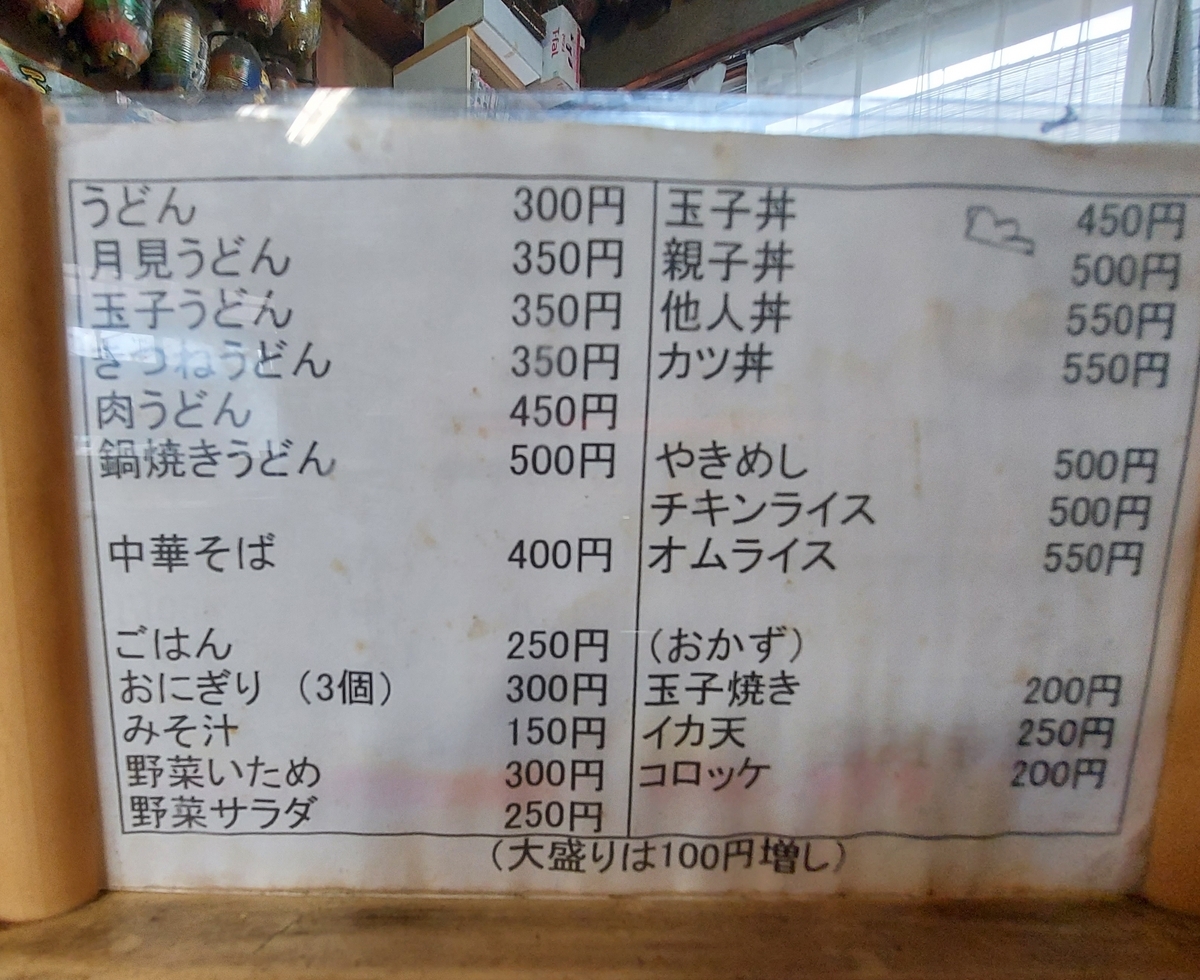 T-fal
うどん 300円
月見うどん 350円
玉子うどん 350円
きつねうどん 350円
肉うどん 450円
鍋焼きうどん 500円
中華そば 400円
ごはん 250円
おにぎり （3個） 300円
みそ汁 150円
野菜いため 300円
野菜サラダ 250円
玉子丼 450円
親子丼 500円
他人丼 550円
カツ丼 550円
やきめし 500円
チキンライス 500円
オムライス 550円
（おかず）
玉子焼き 200円
イカ天 250円
コロッケ 200円
（大盛りは100円増し）